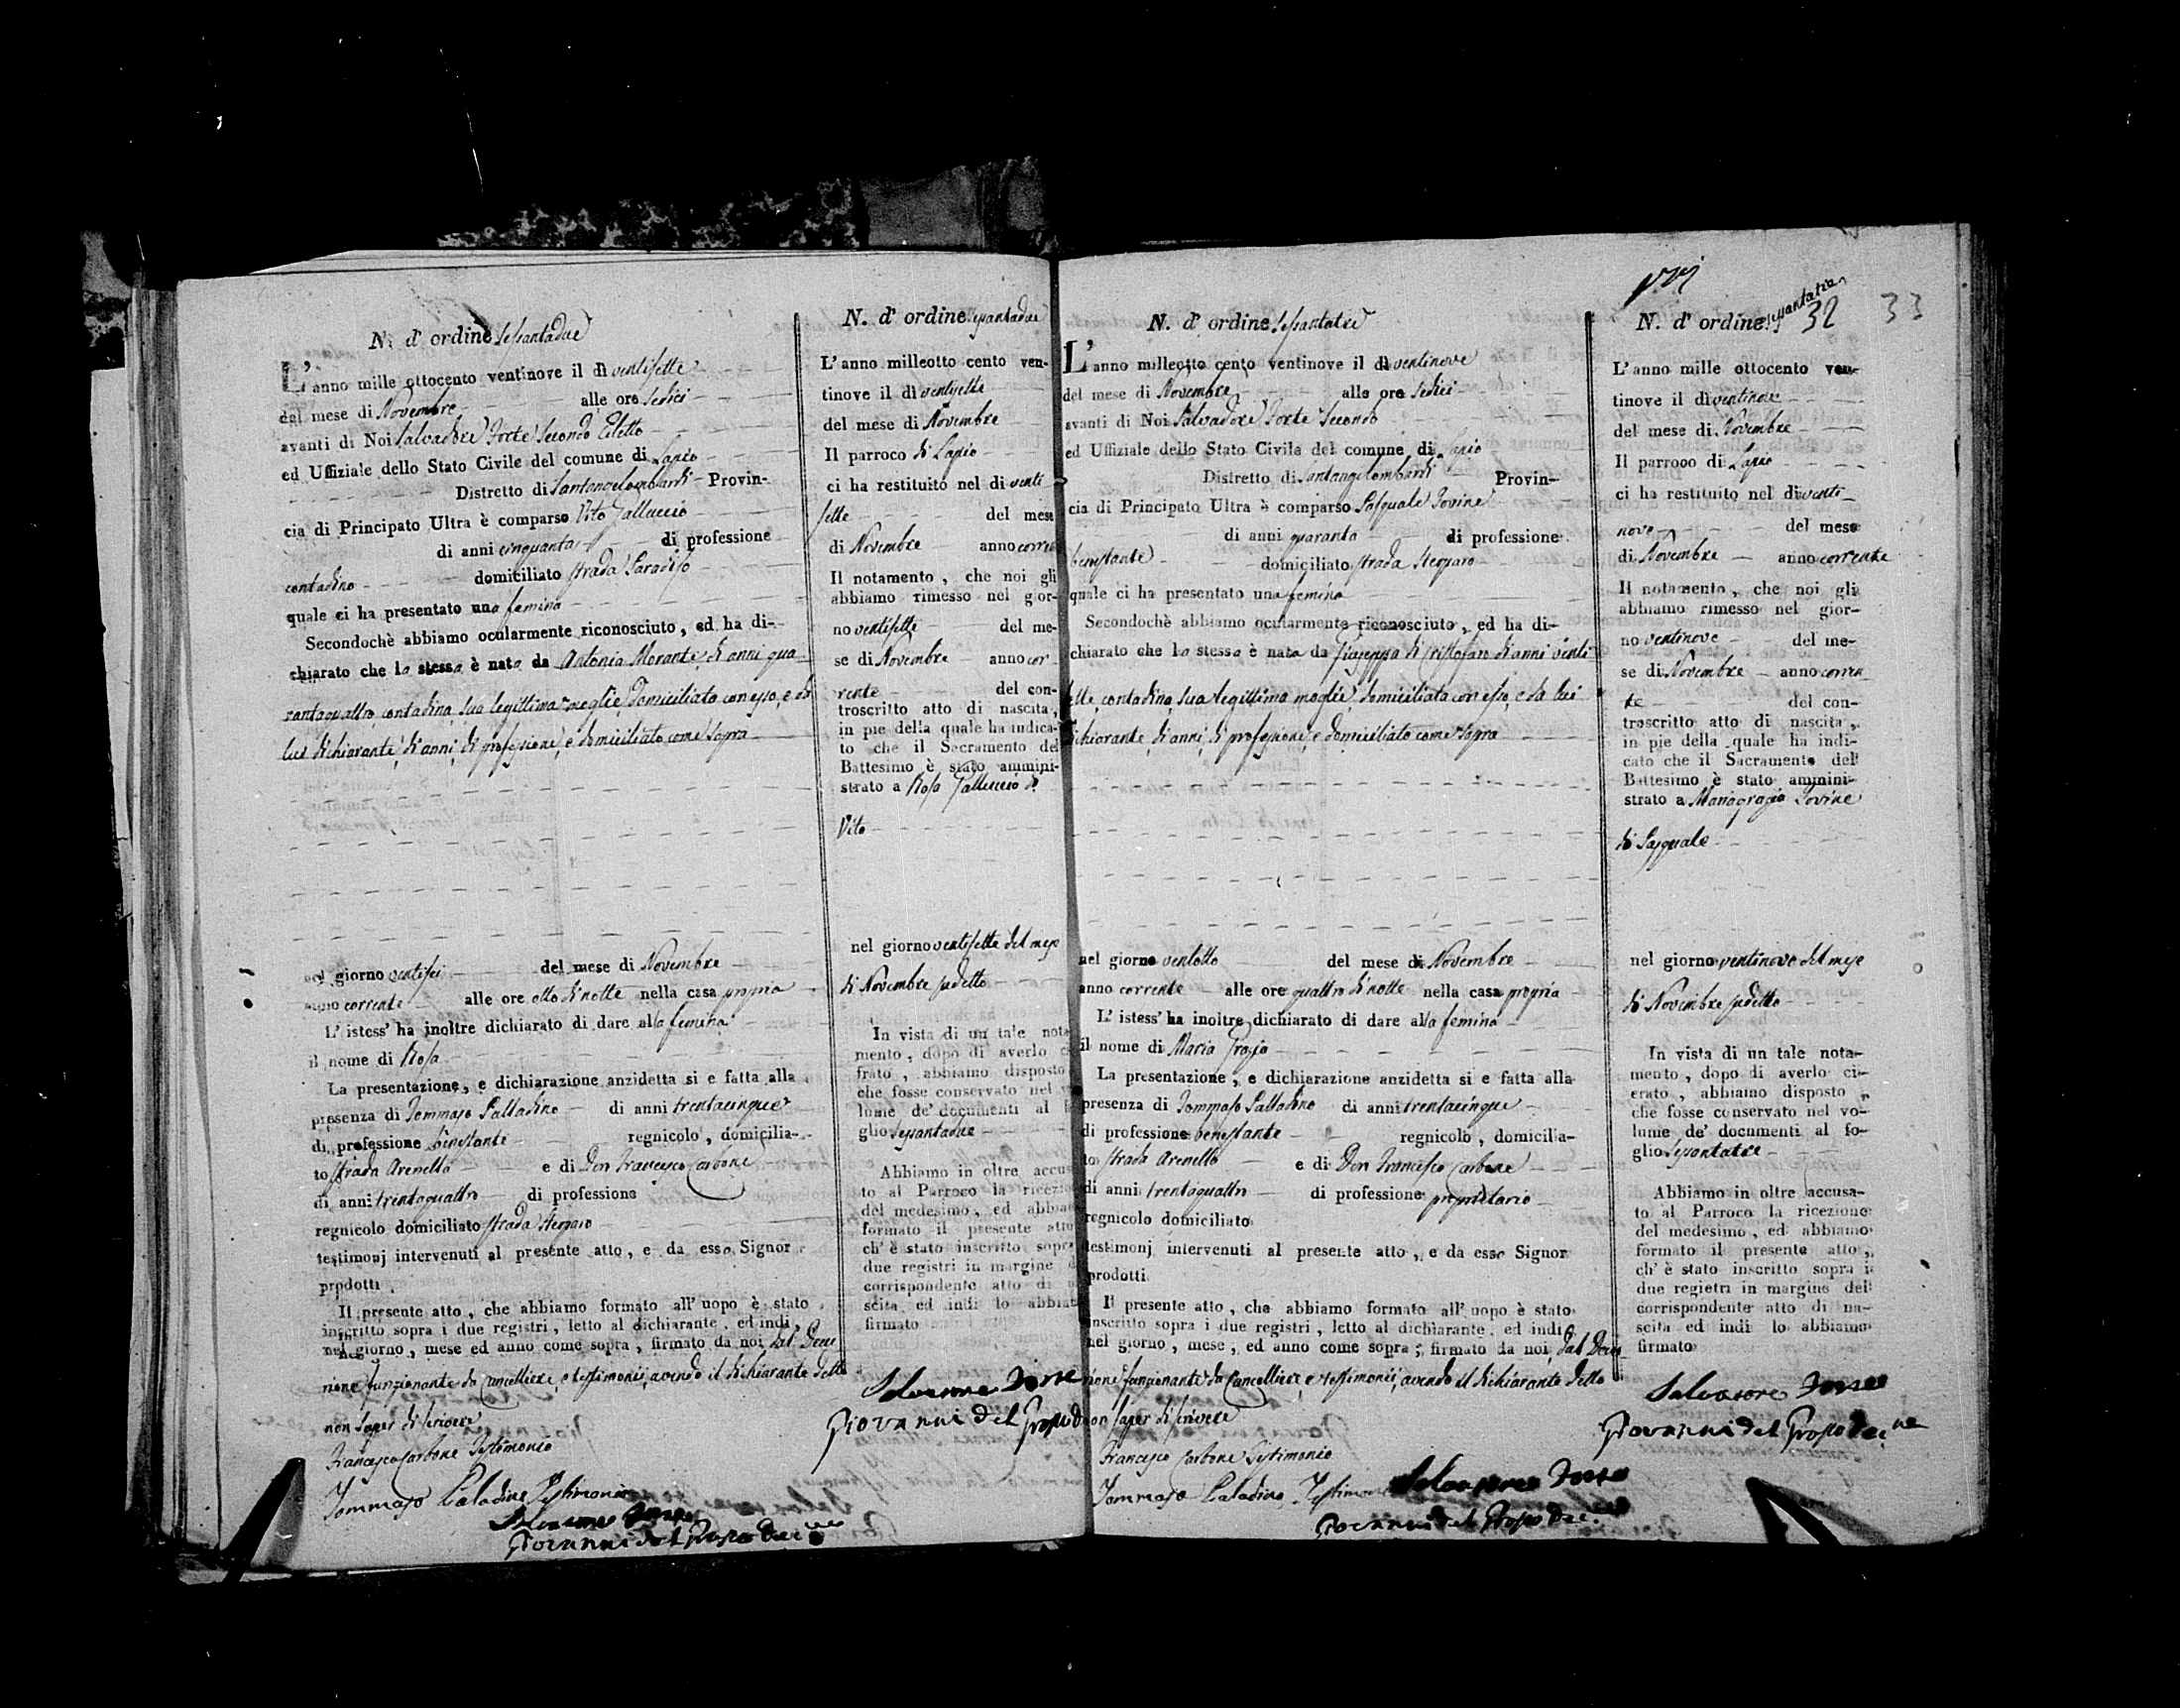 N. d' ordine sessantadue
L'anno mille ottocento ventinove il dì ventisette
del mese di Novembre alle ore sedici
avanti di Noi Salvadore Forte Secondo Eletto
ed Uffiziale dello Stato Civile del comune di Lapio
Distretto di Santangelombardi Provin-
cia di Principato Ultra è comparso Vito Galluccio
di anni cinquanta di professione
contadino domiciliato strada Paradiso
quale ci ha presentato una femina
Secondochè abbiamo ocularmente riconosciuto, ed ha di-
chiarato che la stessa è nata da Antonia Morante, di anni qua-
rantaquattro, contadina, sua legittima moglie, domiciliata con esso, e da
lui dichiarante, di anni, di professione, e domiciliato come sopra
nel giorno ventisei del mese di Novembre
anno corrente alle ore otto di notte nella casa propria
L' istess' ha inoltre dichiarato di dare alla femina
il nome di Rosa
La presentazione, e dichiarazione anzidetta si e fatta alla
presenza di Tommaso Palladino di anni trentacinque
di professione benestante regnicolo, domicilia-
to strada Arenella e di Don Francesco Carbone
di anni trentaquattro di professione
regnicolo domiciliato strada
testimonj intervenuti al presente atto, e da esso Signor
prodotti.
Il presente atto, che abbiamo formato all' uopo è stato
inscritto sopra i due registri, letto al dichiarante, ed indi,
nel giorno, mese ed anno come sopra, firmato da noi, dal Decu-
rione funzionante da Cancelliere, e testimonii, avendo il dichiarante detto
non saper di scrivere
Francesco Carbone Testimonio
Tommaso Paladino Testimonio
Salvatore Forte
Giovanni del Grosso Dec.ne
N. d' ordine sessantadue
L'anno milleotto cento ven-
tinove il dì ventisette
del mese di Novembre
Il parroco di Lapio
ci ha restituito nel dì venti
sette del mese
di Novembre anno corren
Il notamento, che noi gli
abbiamo rimesso nel gior-
no ventisette del me-
se di Novembre anno cor-
rente del con-
troscritto atto di nascita,
in pie della quale ha indica-
to che il Sacramento del
Battesimo è stato ammini-
strato a Rosa Galluccio di
Vito
nel giorno ventisette del mese
di Novembre sudetto
In vista di un tale nota-
mento, dopo di averlo ci-
frato, abbiamo disposto
che fosse conservato nel vo-
lume de' documenti al fo-
glio sessantadue
Abbiamo in oltre accusa-
to al Parroco la ricezio
del medesimo, ed abbiamo
formato il presente atto
ch' è stato inscritto sopra
due registri in margine
corrispondente atto di na-
scita ed indi lo abbiam
firmato
Salvatore Forte
Giovanni del Grosso D
N. d' ordine sessantatre
L'anno milleotto cento ventinove il dì ventinove
del mese di Novembre alle ore sedici
avanti di Noi Salvadore Forte Secondo
ed Uffiziale dello Stato Civile del comune di Lapio
Distretto di Santangelombardi Provin-
cia di Principato Ultra è comparso Pasquale Iovine
di anni quaranta di professione
benestante domiciliato strada
quale ci ha presentato una femina
Secondochè abbiamo ocularmente riconosciuto, ed ha di-
chiarato che la stessa è nata da Giuseppa di Cristofaro di anni venti
sette, contadina, sua legittima moglie, domiciliata con esso, e da lui
dichiarante, di anni, di professione, e domiciliato come sopra
nel giorno ventotto del mese di Novembre
anno corrente alle ore quattro di notte nella casa propria
L' istess' ha inoltre dichiarato di dare alla femina
il nome di Maria Grazia
La presentazione, e dichiarazione anzidetta si e fatta alla
presenza di Tommaso Palladino di anni trentacinque
di professione benestante regnicolo, domicilia-
to strada Arenella e di Don Francesco Carbone
di anni trentaquattro di professione proprietario
regnicolo domiciliato
testimonj intervenuti al presente atto, e da esso Signor
prodotti.
Il presente atto, che abbiamo formato all' uopo è stato
inscritto sopra i due registri, letto al dichiarante, ed indi,
nel giorno, mese, ed anno come sopra, firmato da noi, dal Decu-
rione funzionante da Cancelliere, e testimonii, avendo il dichiarante detto
non saper di scrivere
Francesco Carbone Testimonio
Tommaso Paladino Testimonio
Salvatore Forte
Giovanni del Grosso Dec.ne
N. d' ordine sessantatre
32 33
L'anno mille ottocento ven-
tinove il dì ventinove
del mese di Novembre
Il parroco di Lapio
ci ha restituito nel dì venti-
nove del mese
di Novembre anno corrente
Il notamento, che noi gli
abbiamo rimesso nel gior-
no ventinove del me-
se di Novembre anno corren-
te del con-
troscritto atto di nascita,
in pie della quale ha indi-
cato che il Sacramento del
Battesimo è stato ammini-
strato a Mariagrazia Iovine
di Pasquale
nel giorno ventinove del mese
di Novembre sudetto
In vista di un tale nota-
mento, dopo di averlo ci-
erato, abbiamo disposto,
che fosse conservato nel vo-
lume de' documenti al fo-
glio sessantatre
Abbiamo in oltre accusa-
to al Parroco la ricezione
del medesimo, ed abbiamo
formato il presente atto,
ch' è stato inscritto sopra i
due registri in margine del
corrispondente atto di na-
scita ed indi lo abbiamo
firmato
Salvatore Forte
Giovanni del Grosso Dec.ne